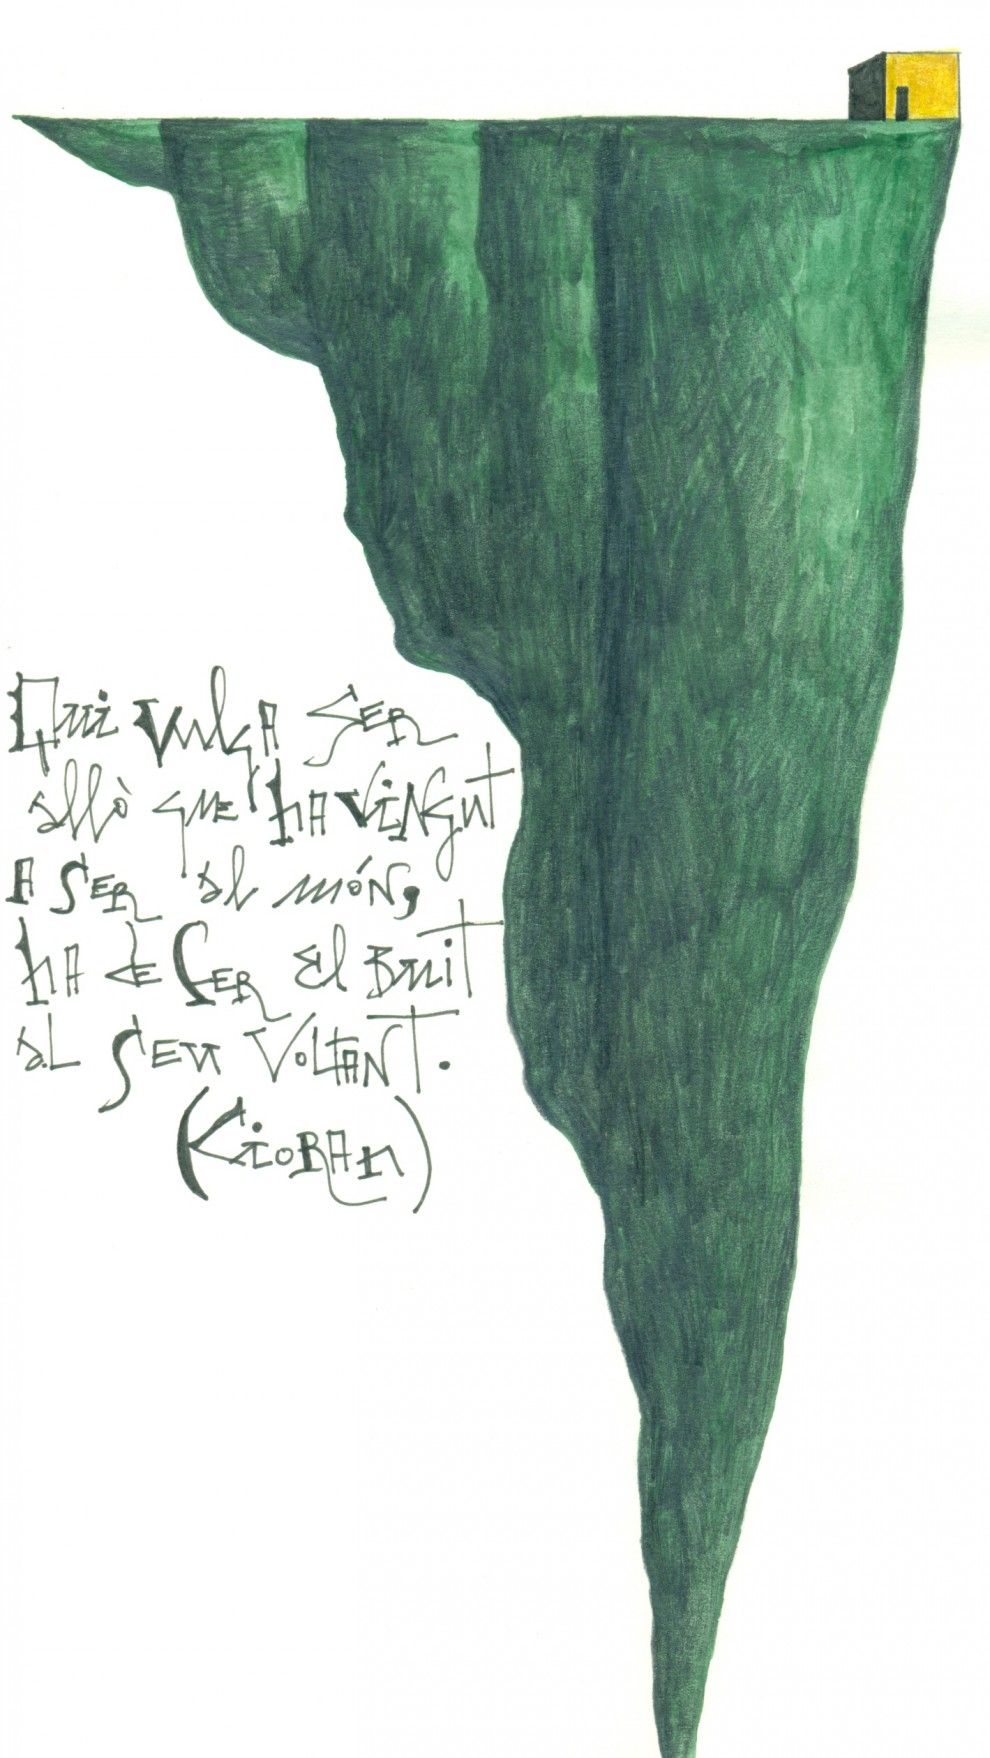 Qui vulga ser
allò que ha vingut
a ser al món,
ha de fer el buit
al seu voltant.
(Cioran)